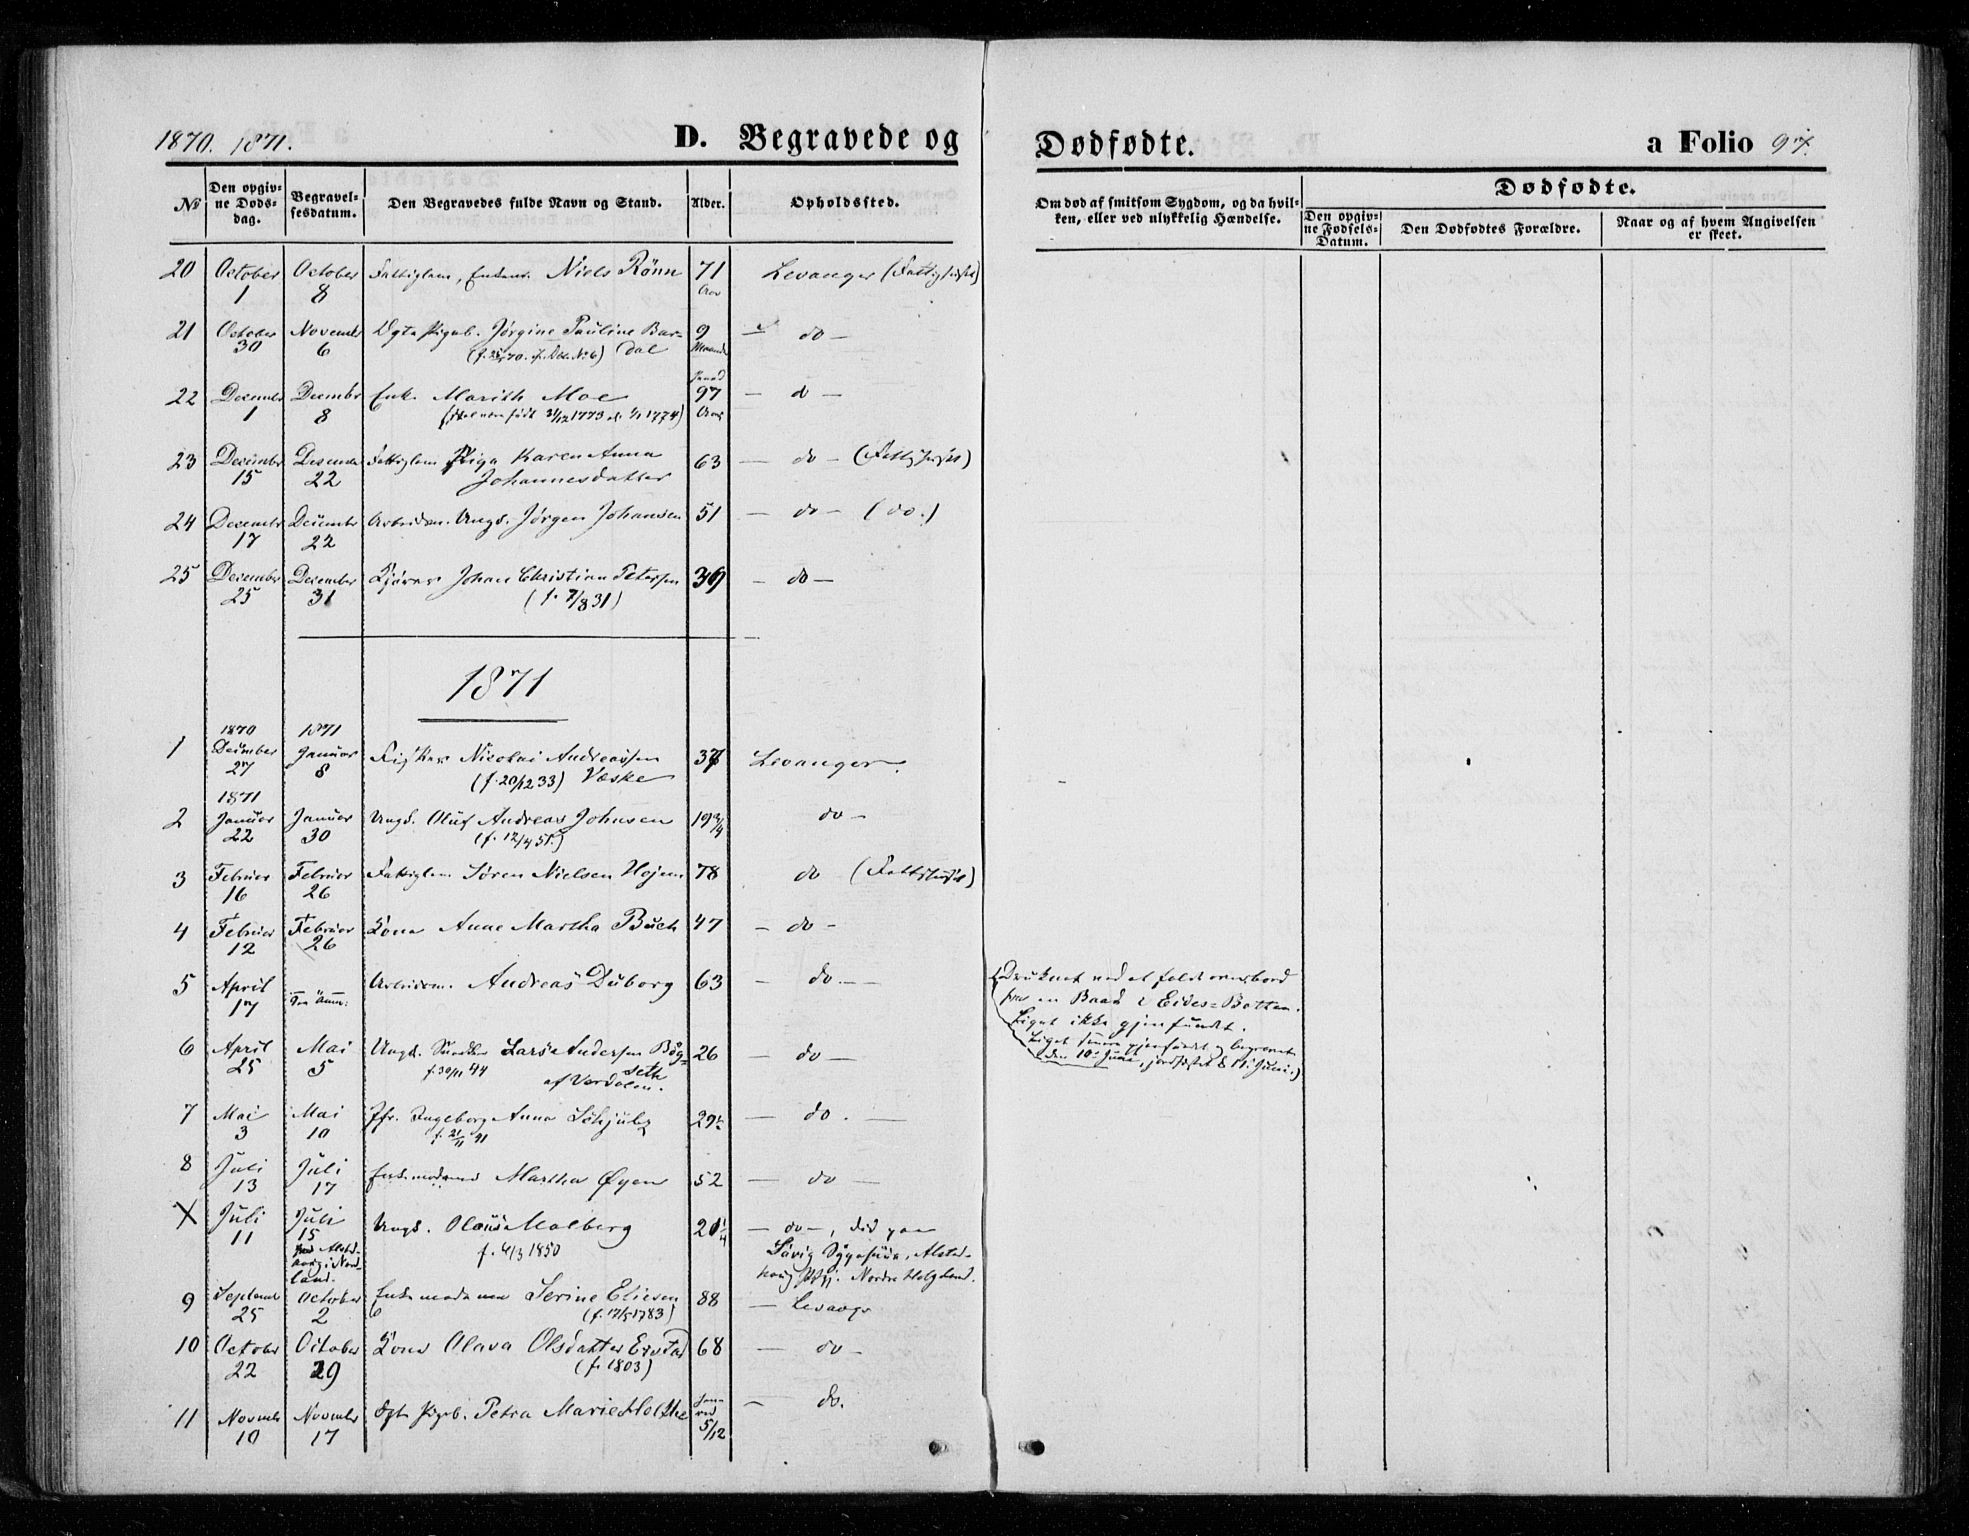 1870. 1871.
D. Begravede og
Dødfødte.
a Folio 97.
No
Den opgivne Døds-dag.
Begravelsesdatum.
Den Begravedes fulde Navn og Stand.
Alder.
Opholdssted.
Om død af smitsom Sygdom, og da hvilken, eller ved ulykkelig Hændelse.
Dødfødte.
Den opgivne Fødsels-Datum.
Den Dødfødtes Forældre.
Naar og af hvem Angivelsen er skeet.
20 October 1 October 8 Fattiglem, Enkem. Niels Rönn 71 Aar Levanger (Fattighuset)
21 October 30 November 6 Dgte Pigeb. Jørgine Pauline Bardal 9 Maaneder – do –
22 December 1 December 8 Enke Marith Moe 97 Aar – d –
(skal være født 31/12 1773 el. 1/1 1774)
23 December 15 December 22 Fattiglem Pige Karen Anna 63 – do – (Fattighuset)
Johannesdatter
24 December 17 December 22 Arbeidsm. Ungk. Jørgen Johansen 51 – do – (do.)
25 December 25 December 31 Johan Christian Petersen 39 – do –
(f. 7/8 31)
1871
1 1870 December 27 1871 Januar 8 Nicolai Andreassen 37 Levanger.
(f. 20/12 33) Væske
2 1871 Januar 22 Januar 30 Ungk. Oluf Andreas Johnsen 19 3/4 do –
(f. 12/4 51.)
3 Februar 16 Februar 26 Fattiglem Søren Nielsen Hojem 78 do (Fattighuset)
4 Februar 12 Februar 26 Kone Anne Martha Buch 47 – do –
5 April 17 Arbeidsm. Andreas Duborg 63 – do. –
Druknet ved at falde overbord
fra en Baad i Eides=Botten.
Liget ikke gjenfundet.
Liget senere gjenfundet og begravet
den 10de Juni, jordfæstet d. 11te Juni.)
6 April 25 Mai 5 Ungk. Lars Andersen Bög= 26 – do –
f. 30/11 44 seth
af Værdalen.
7 Mai 3 Mai 10 Jfr. Ingeborg Anna Schjulz 29 1/2 – do. –
f. 21/11 41
8 Juli 13 Juli 17 Enkemadame Martha Øyen 52 – do –
X Juli 11 Juli 15 Ungk. Olaus Malberg 21 1/4 – do –, død paa
f. 4/3 1850
Alstahoug i Nordland.
Søvig Sygehuus, Alstahoug Pgj. Nordre Helgeland.
9 September 25 October 2 Enkemadame Serine Eliesen 88 – Levanger
(f. 17/5 1783)
10 October 22 October 29 Kone Olava Olsdatter 68 – do –
(f. 1803)
11 November 10 November 17 Dgte Pigeb. Petra Marie Holthe 5/12 – do.